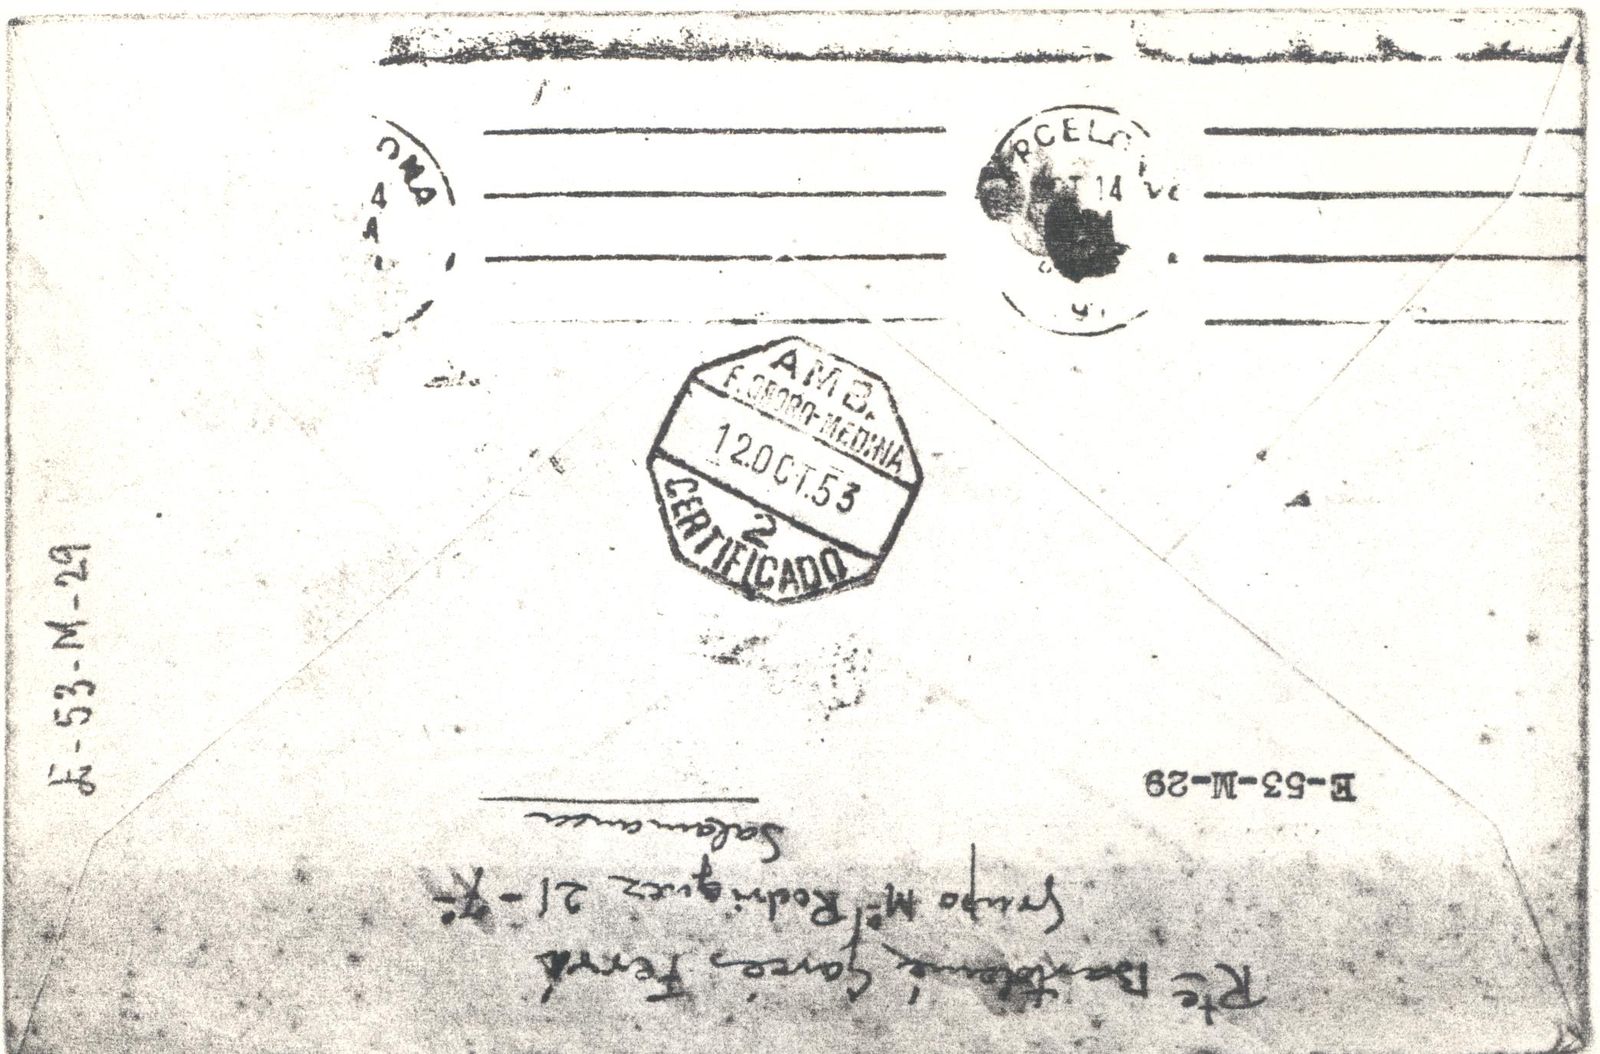 ONA
4
A
RCELO
CT 14
AMB.
F.OÑORO-MEDINA
12.OCT.53
2
CERTIFICADO
E-53-M-29
E-53-M-29
Rte Bartolomé Garcés Ferrá
Grupo Mª Rodriguez 21-7º
Salamanca